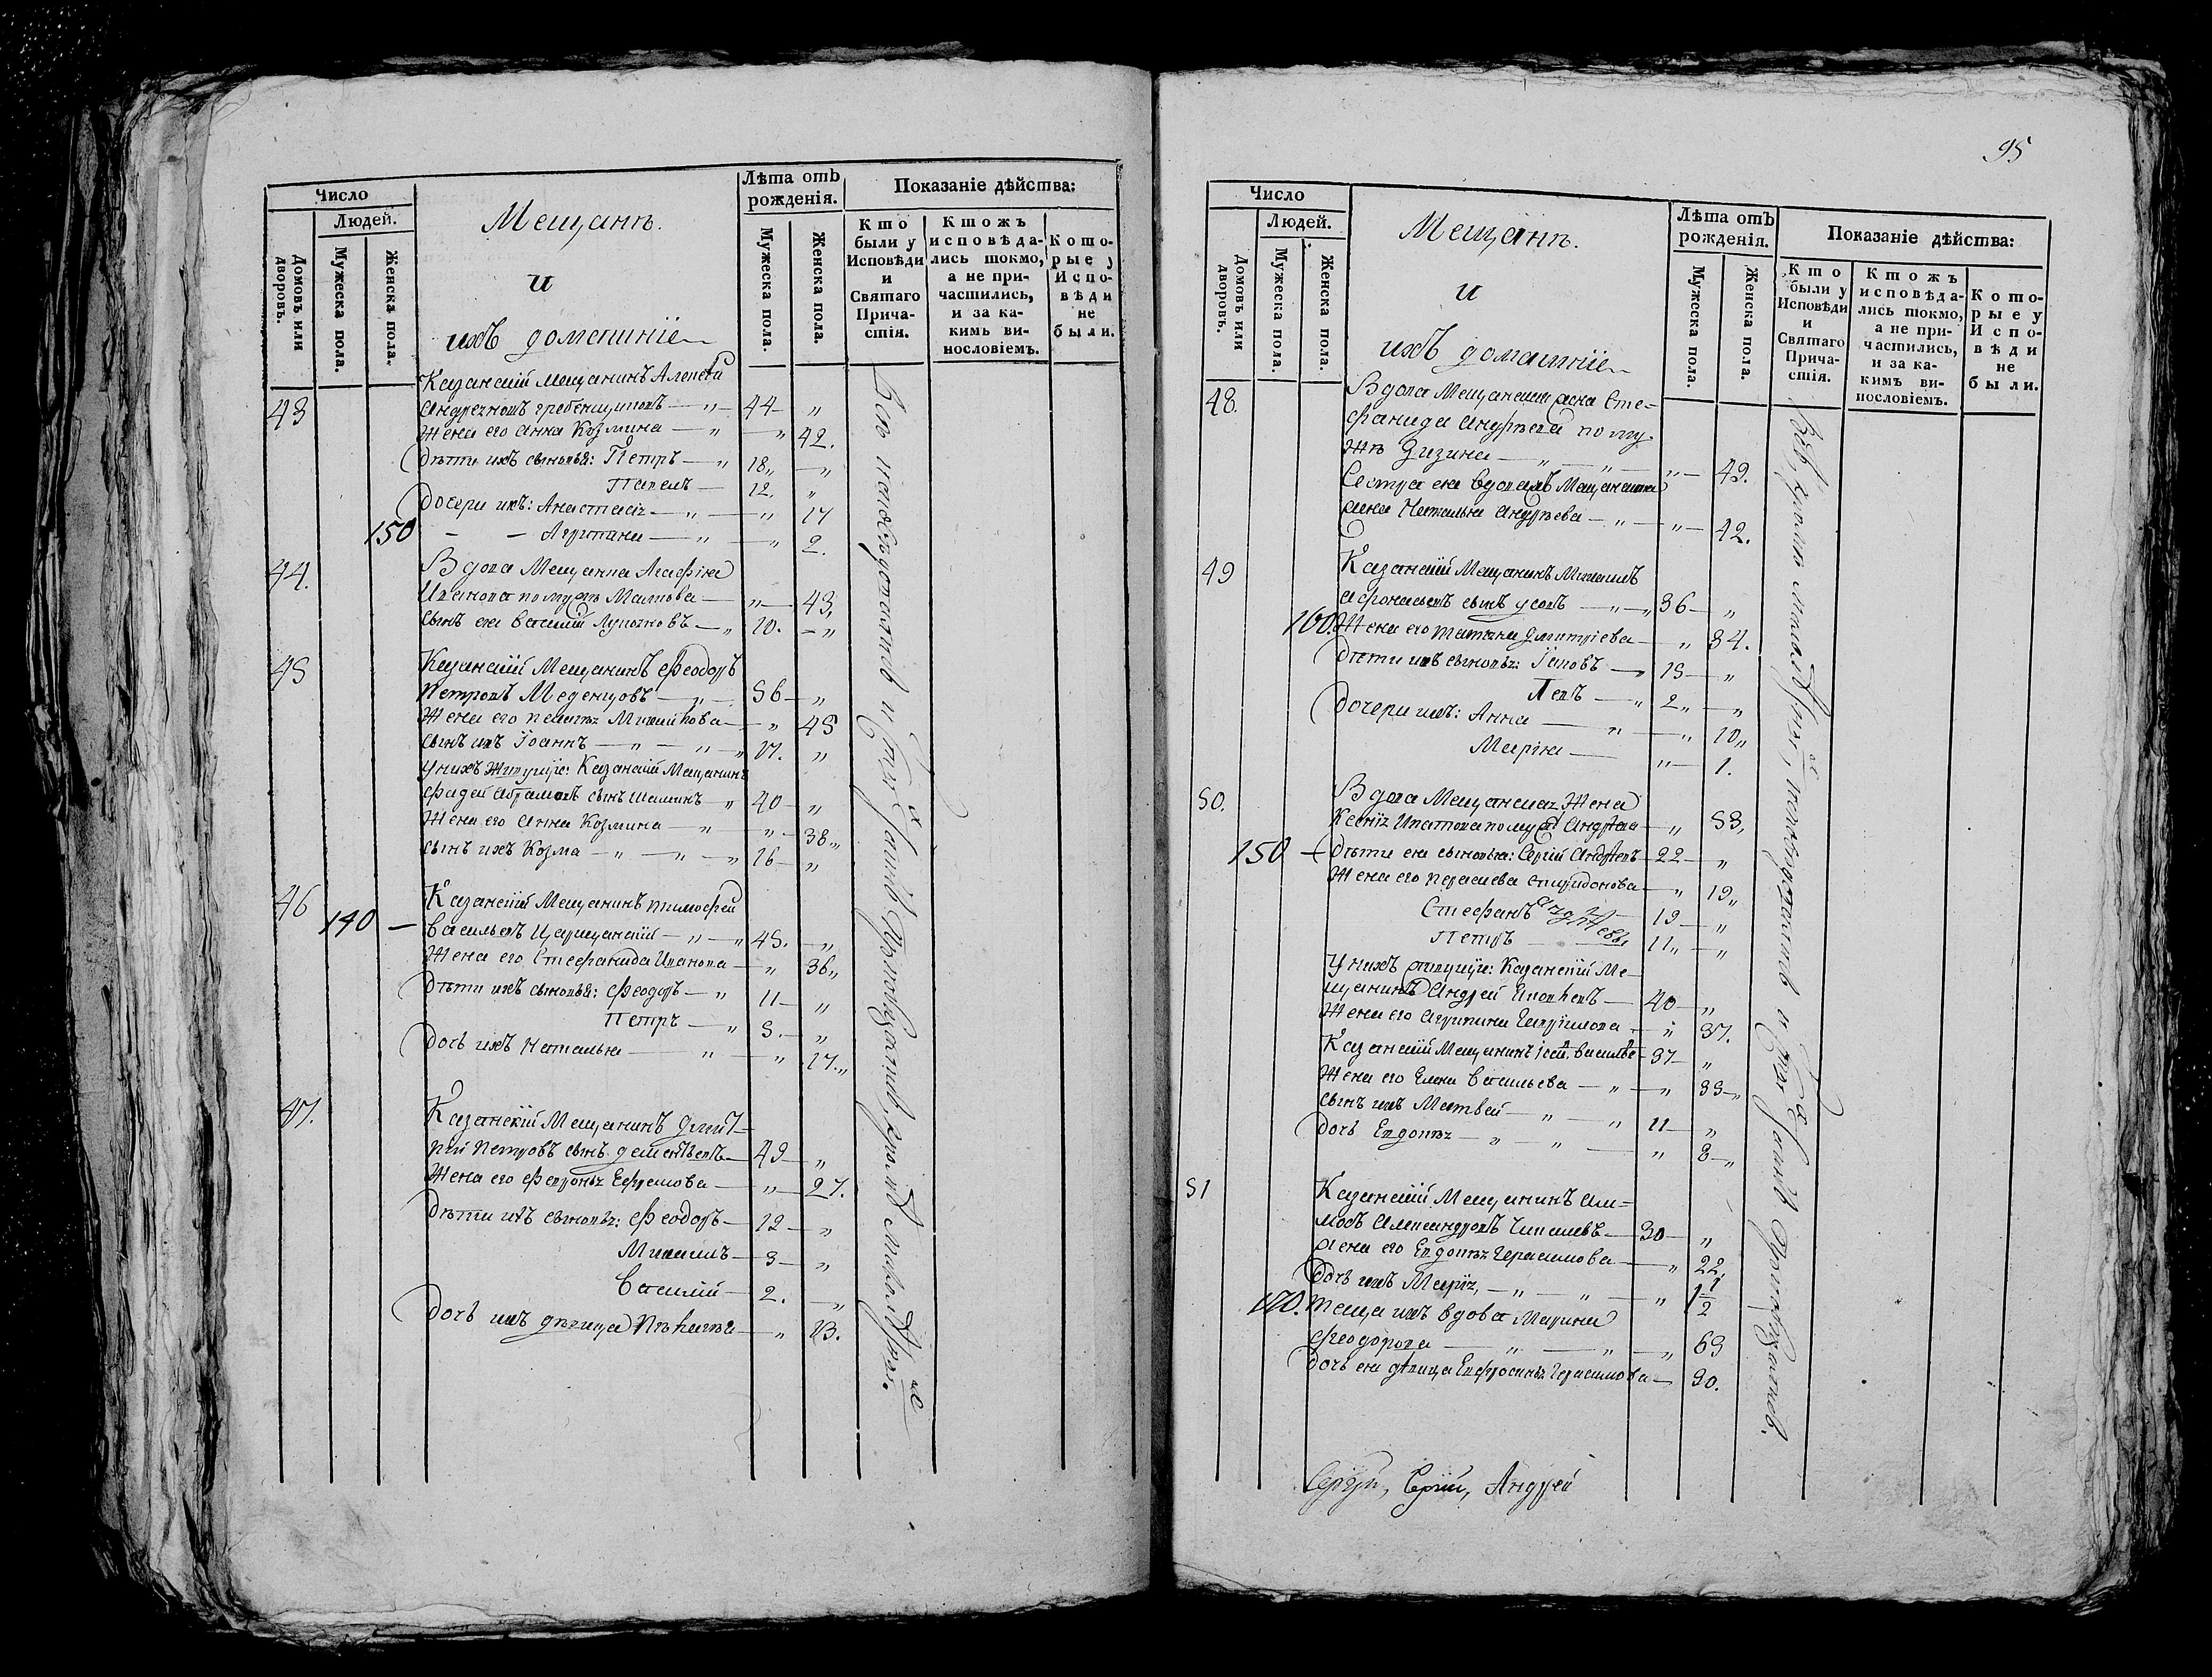 Число
Людей.
Домовъ или дворовъ.
Мужеска пола.
Женска пола.
Мещанъ.
и
ихъ домашніе
Лѣта отъ рожденія.
Мужеска пола.
Женска пола.
Показаніе дѣйства:
Кто были у Исповѣди и Святаго Причастія.
Ктожъ исповѣдались токмо, а не причастились, и за какимъ винословіемъ.
Которые у Исповѣди не были.
43 Казанскій Мещанинъ Алексѣй
Андреяновъ гребенщиковъ — „ 44 — „
Жена его Анна Козмина — „ — „ 42.
Дѣти ихъ сыновья: Петръ — „ 18 „ — „
Павелъ — 12. „
Дочери ихъ: Анастасія — „ — „ 17
150 — — — „ — „ 2.
44. Вдова Мещанка Агафія
Иванова по мужѣ — „ — 43,
Сынъ ея Василій — „ 10. — „
45 Казанскій Мещанинъ Феодоръ
Петровъ Меденцовъ — „ — 56 — „
Жена его — „ 45
Сынъ ихъ Іоаннъ — „ — „ — „ 17. „
У нихъ Живущіе: Казанскій Мещанинъ
Фадей Абрамовъ сынъ — „ 40 — „
Жена его Анна Козмина — „ — „ — 38 „
Сынъ ихъ Козма — „ — „ — „ 16 — „
46 Казанскій Мещанинъ Тимофей
140 — Васильевъ Царицанскій — „ — „ 45. — „
Жена его Стефанида Иванова — „ 36 „
Дѣти ихъ сыновья: Феодоръ — „ 11 — „
Петръ — „ 5. — „
Дочь ихъ Наталья — „ — „ 17. „
47. Казанскій Мещанинъ Дмит-
рій Петровъ сынъ Дементьевъ — 49 — „
Жена его Февронья Ефремова — „ — 27.
Дѣти ихъ сыновья: Феодоръ — 12 — „
Михаилъ — 3 — „
Василій — 2. — „
Дочь ихъ дѣвица — „ 13.
95
Число
Людей.
Домовъ или дворовъ.
Мужеска пола.
Женска пола.
Мещанъ.
и
ихъ домашніе
Лѣта отъ рожденія.
Мужеска пола.
Женска пола.
Показаніе дѣйства:
Кто были у Исповѣди и Святаго Причастія.
Ктожъ исповѣдались токмо, а не причастились, и за какимъ винословіемъ.
Которые у Исповѣди не были.
48. Вдова Мещанская жена Сте-
фанида Андрѣева по му-
жѣ Зизина — „ — „ — „ — 49.
Сестра ея вдовая Мещанская
жена Наталья Андрѣева — „ — „ — 42.
49 Казанскій Мещанинъ Михаилъ
Афонасьевъ сынъ — „ — „ 36 — „
160. Жена его Татьяна Дмитріева — „ 34.
Дѣти ихъ сыновья: Іаковъ — „ 15 — „
Левъ — „ 2 „ — „
Дочери ихъ: Анна — „ — „ 10 „
Марія — „ — 1.
50. Вдова Мещанская Жена
Ксенія Ипатова по мужѣ Андрѣева — „ 53,
150 — Дѣти ея сыновья: Сергій Андрѣевъ — 22 — „
Жена его Параскева Спиридонова — „ 19 „
Стефанъ Андрѣевы 19 — „
Петръ — 11 „ — „
У нихъ живущіе: Казанскій Ме-
щанинъ Андрей — 40 — „
Жена его Агрипина Гаврилова — „ 37.
Казанскій Мещанинъ — 37 — „
Жена его Елена Васильева — „ — „ 33 — „
Сынъ ихъ Матвей — „ — „ 11 — „
Дочь Евдокія — „ — „ — „ 8 — „
51 Казанскій Мещанинъ
Александровъ — 30 — „
Жена его Евдокія Герасимова — „ 22,
Дочь ихъ Марія, — „ — „ — „ 1 1/2
170. Теща ихъ вдова Марина
Феодорова — „ — „ — „ 69
Дочь ея дѣвица Евфросинья Герасимова — 30.
Сергій, Сергій, Андрей